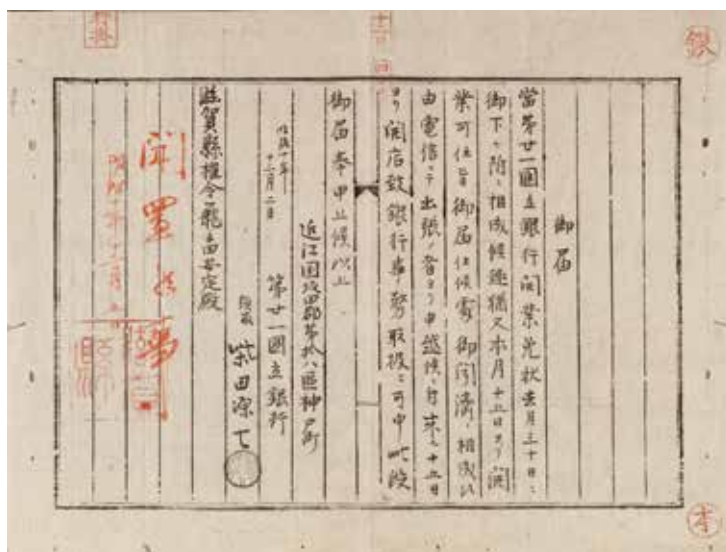 御届
當第廿一國立銀行開業免状去月三十日ニ
御下ヶ附ニ相成候趣猶又本月十五日ヨリ開
業可仕旨御届仕候處御聞済ニ相成候
由電信ニテ出張ノ者ヨリ申越候ニ付来ル十五日
ヨリ開店致銀行事務取扱ニ可申此段
御届奉申上候以上
近江國坂田郡第拾八區神戸町
明治十年
十二月二日
第廿一國立銀行
頭取
柴田源七
滋賀縣権令籠手田安定殿
聞置候事
明治十年十二月 日